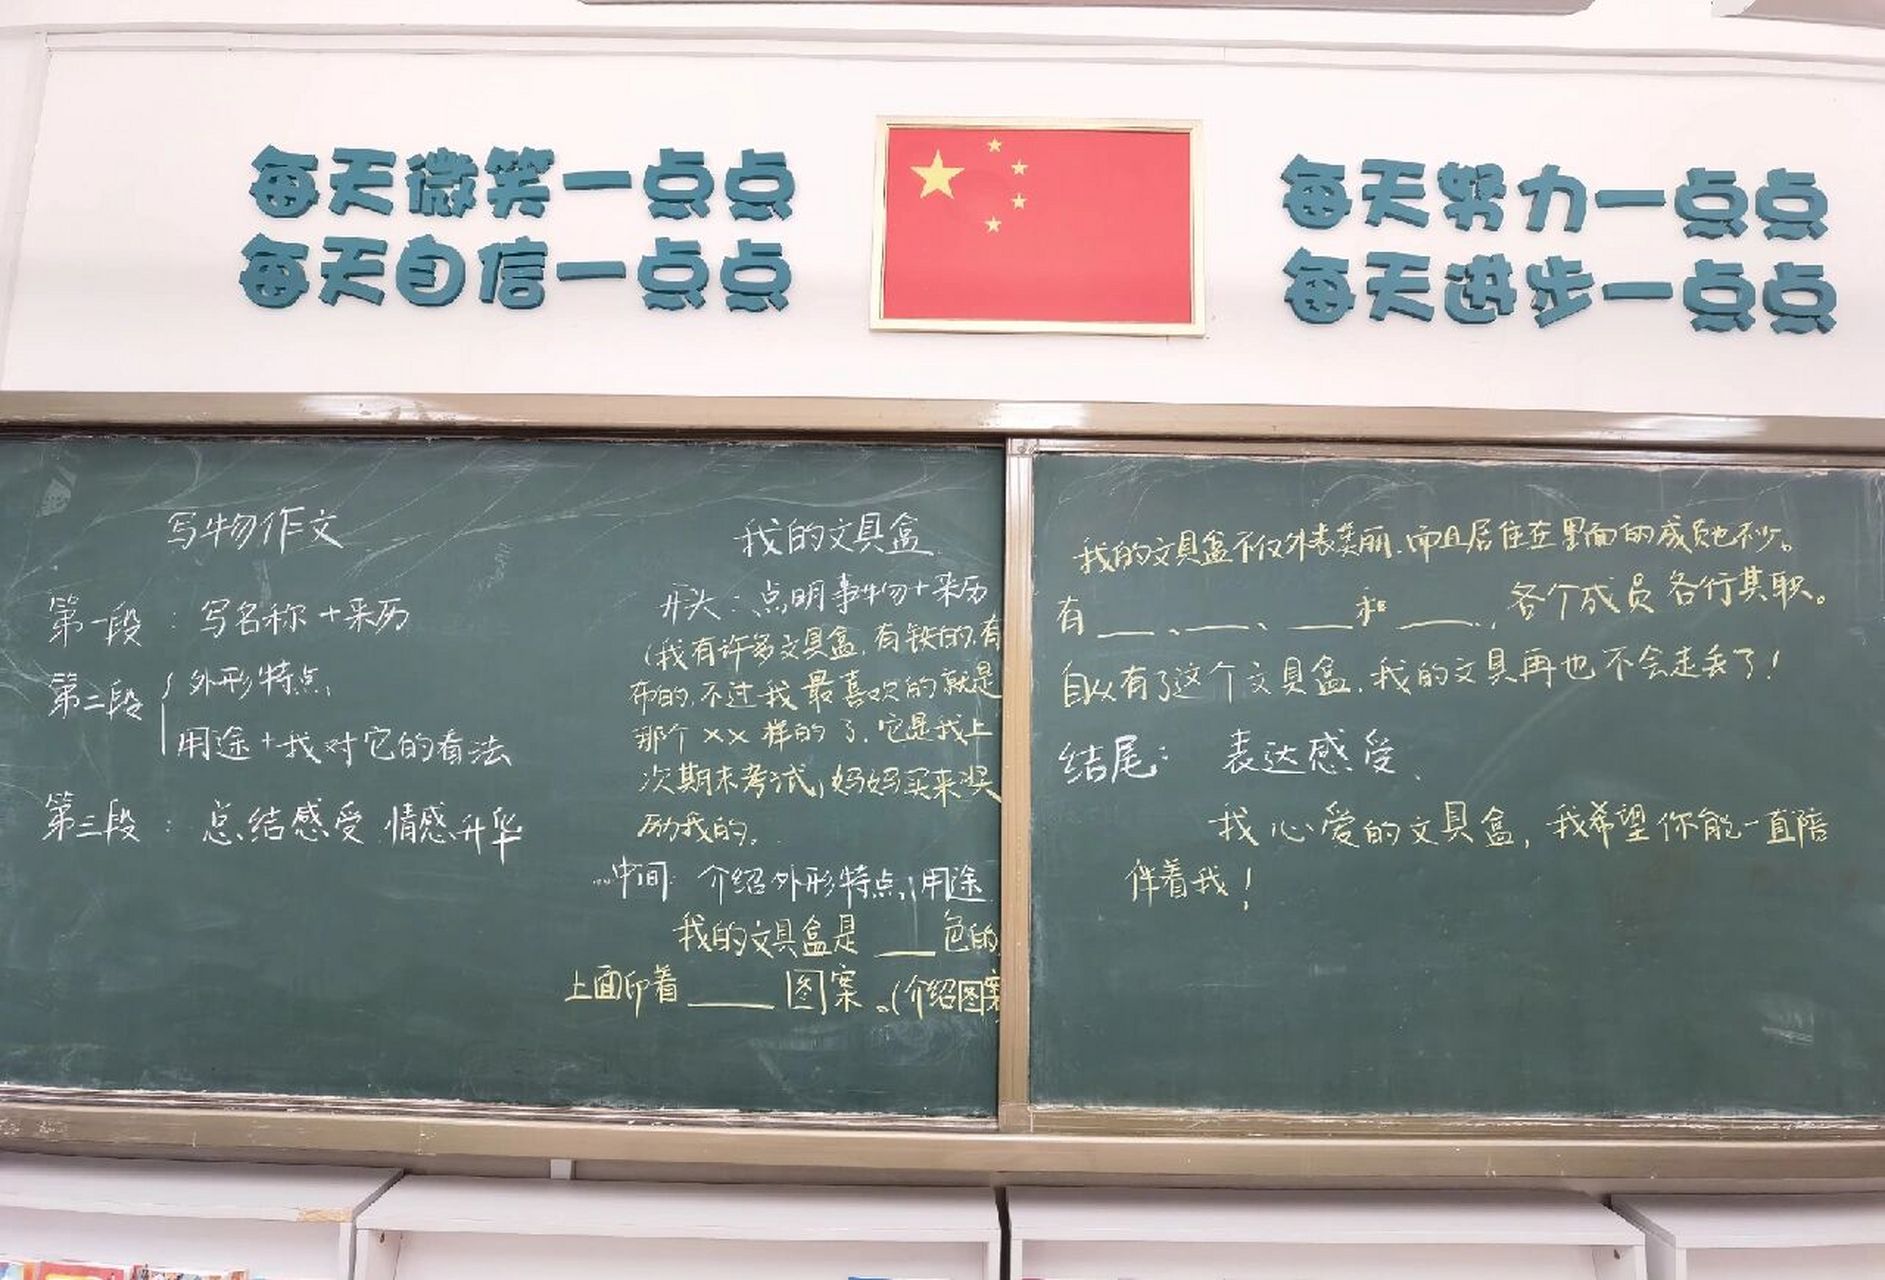 每天微笑一点点
每天自信一点点
每天努力一点点
每天进步一点点
写物作文
第一段：写名称+来历
第二段 外形特点
用途+我对它的看法
第三段：总结感受 情感升华
我的文具盒
开头：点明事物+来历
(我有许多文具盒，有铁的，有
布的，不过我最喜欢的就是
那个××样的了，它是我上
次期末考试，妈妈买来奖
励我的。
中间：介绍外形特点，用途
我的文具盒是____色的
上面印着____图案。(介绍图案
我的文具盒不仅外表美丽，而且居住在里面的成员也不少。
有____、____、____和____，各个成员各行其职。
自从有了这个文具盒，我的文具再也不会走丢了！
结尾：表达感受、
我心爱的文具盒，我希望你能一直陪
伴着我！